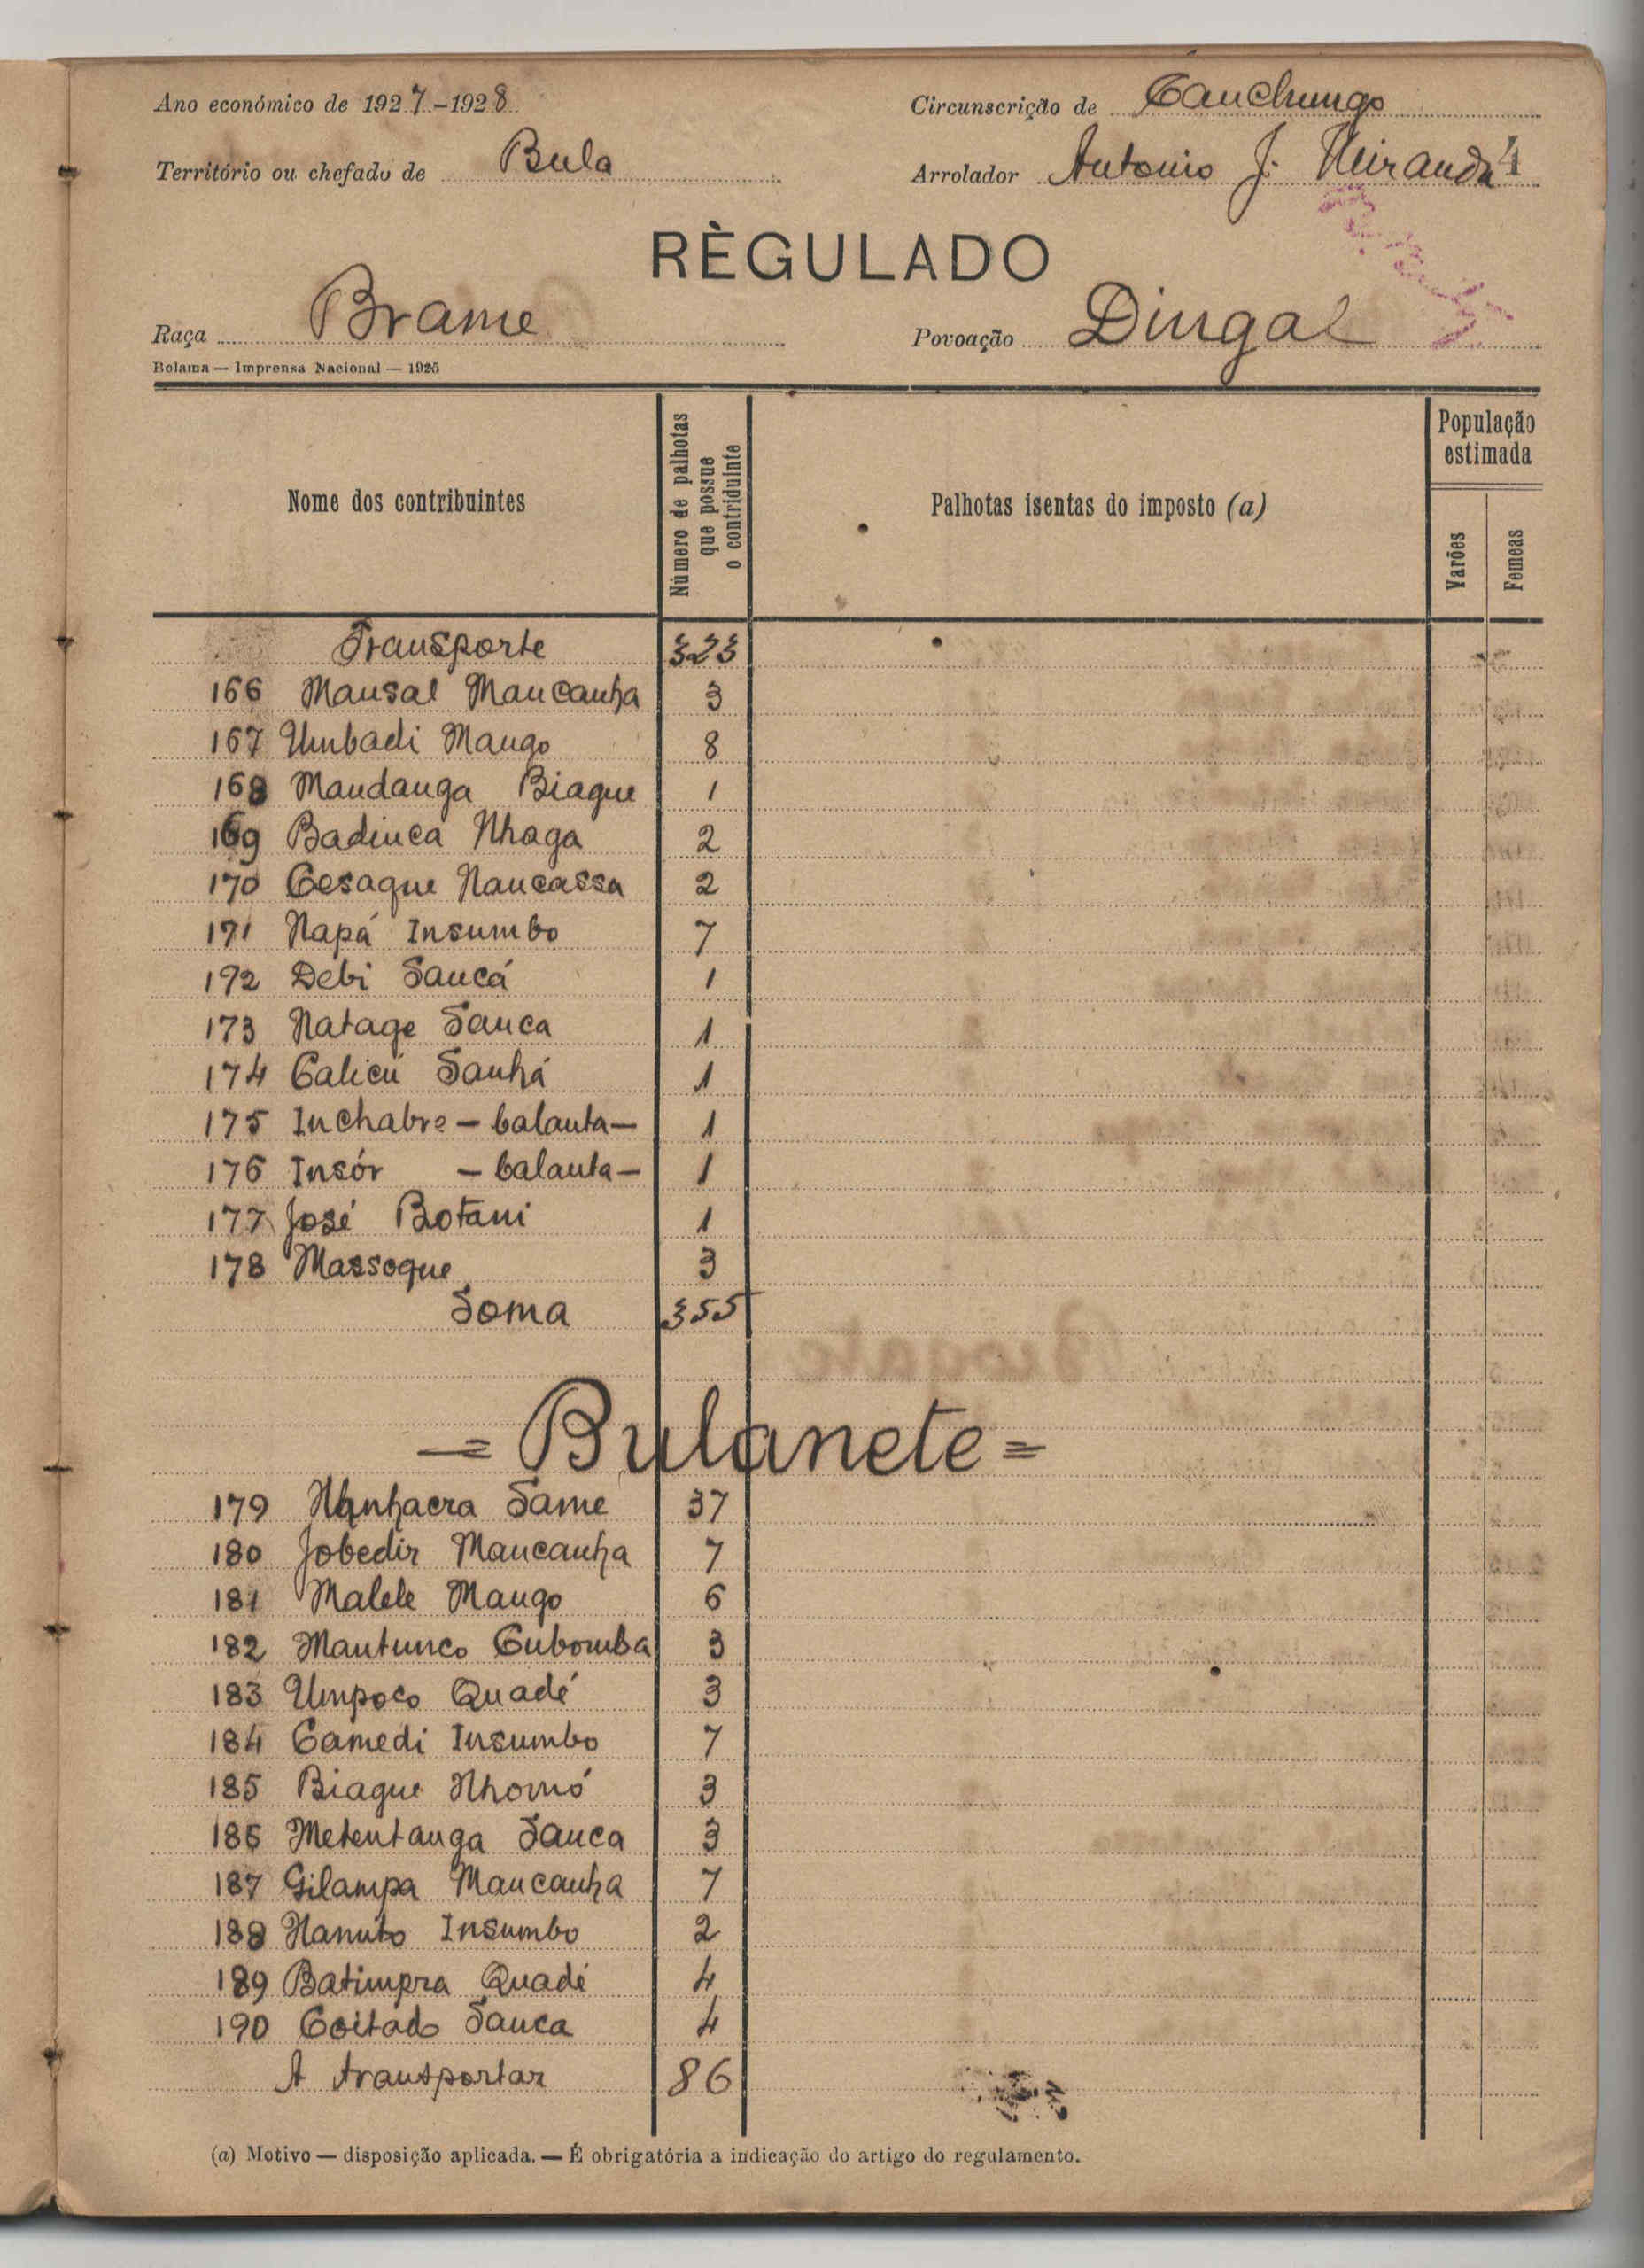 Ano económico de 1927-1928
Circunscrição de Canchungo
Território ou chefado de Bula
Arrolador Antonio J. Miranda 4
RÈGULADO
Raça Brame
Povoação Dingal
Bolama — Imprensa Nacional — 1925
Nome dos contribuintes
Número de palhotas que possue o contriduinte
Palhotas isentas do imposto (a)
População estimada
Varões
Femeas
Transporte 323
166 Mansal Mancanha 3
167 Umbadi Mango 8
168 Mandanga Biague 1
169 Badinca Nhaga 2
170 Cesaque Nancassa 2
171 Napá Insumbo 7
172 Debi Sancá 1
173 Natage Sanca 1
174 Calicú Sanhá 1
175 Inchabre - balanta - 1
176 Insór - balanta - 1
177 José Botani 1
178 Massoque 3
Soma 355
= Bulanete =
179 Nhacra Same 37
180 Jobedir Mancanha 7
181 Malele Mango 6
182 Mantunco Cubomba 3
183 Umpoco Quadé 3
184 Camedi Insumbo 7
185 Biague Nhomó 3
186 Metentanga Sanca 3
187 Gilampa Mancanha 7
188 Nanuto Insumbo 2
189 Batimpra Quadé 4
190 Coitado Sanca 4
A transportar 86
(a) Motivo — disposição aplicada. — É obrigatória a indicação do artigo do regulamento.